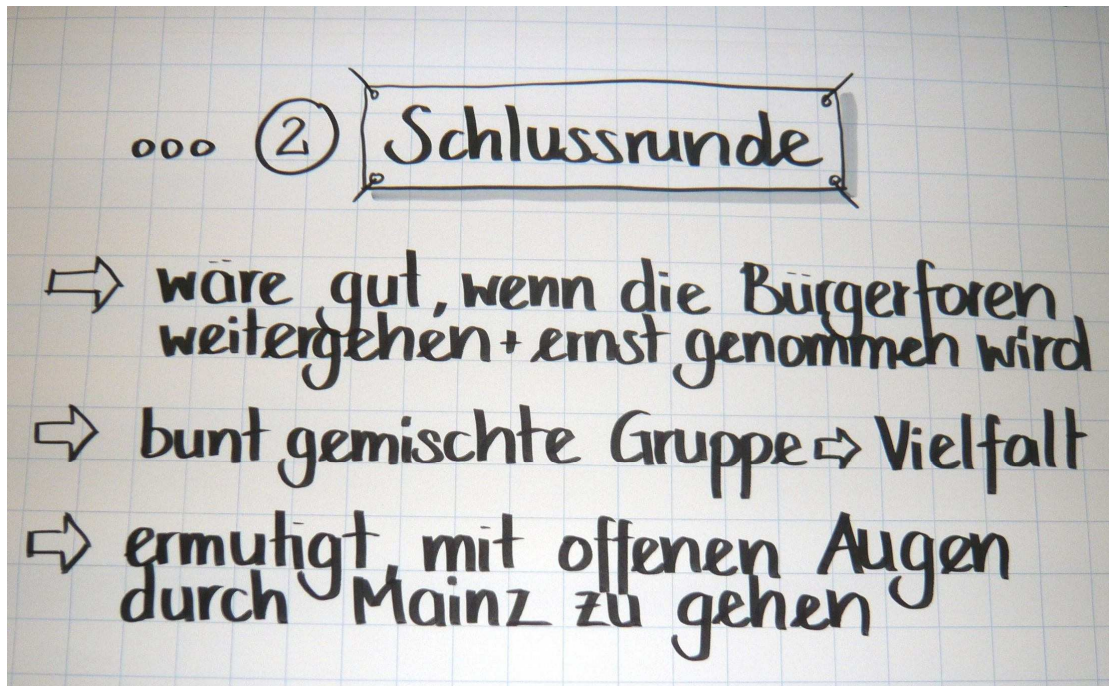 ... ② Schlussrunde
⇨ wäre gut, wenn die Bürgerforen
weitergehen + ernst genommen wird
⇨ bunt gemischte Gruppe ⇨ Vielfalt
⇨ ermutigt, mit offenen Augen
durch Mainz zu gehen